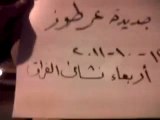 جديدة عرطوز
١٩-١٠-٢٠١١
أربعاء نشامى العراق